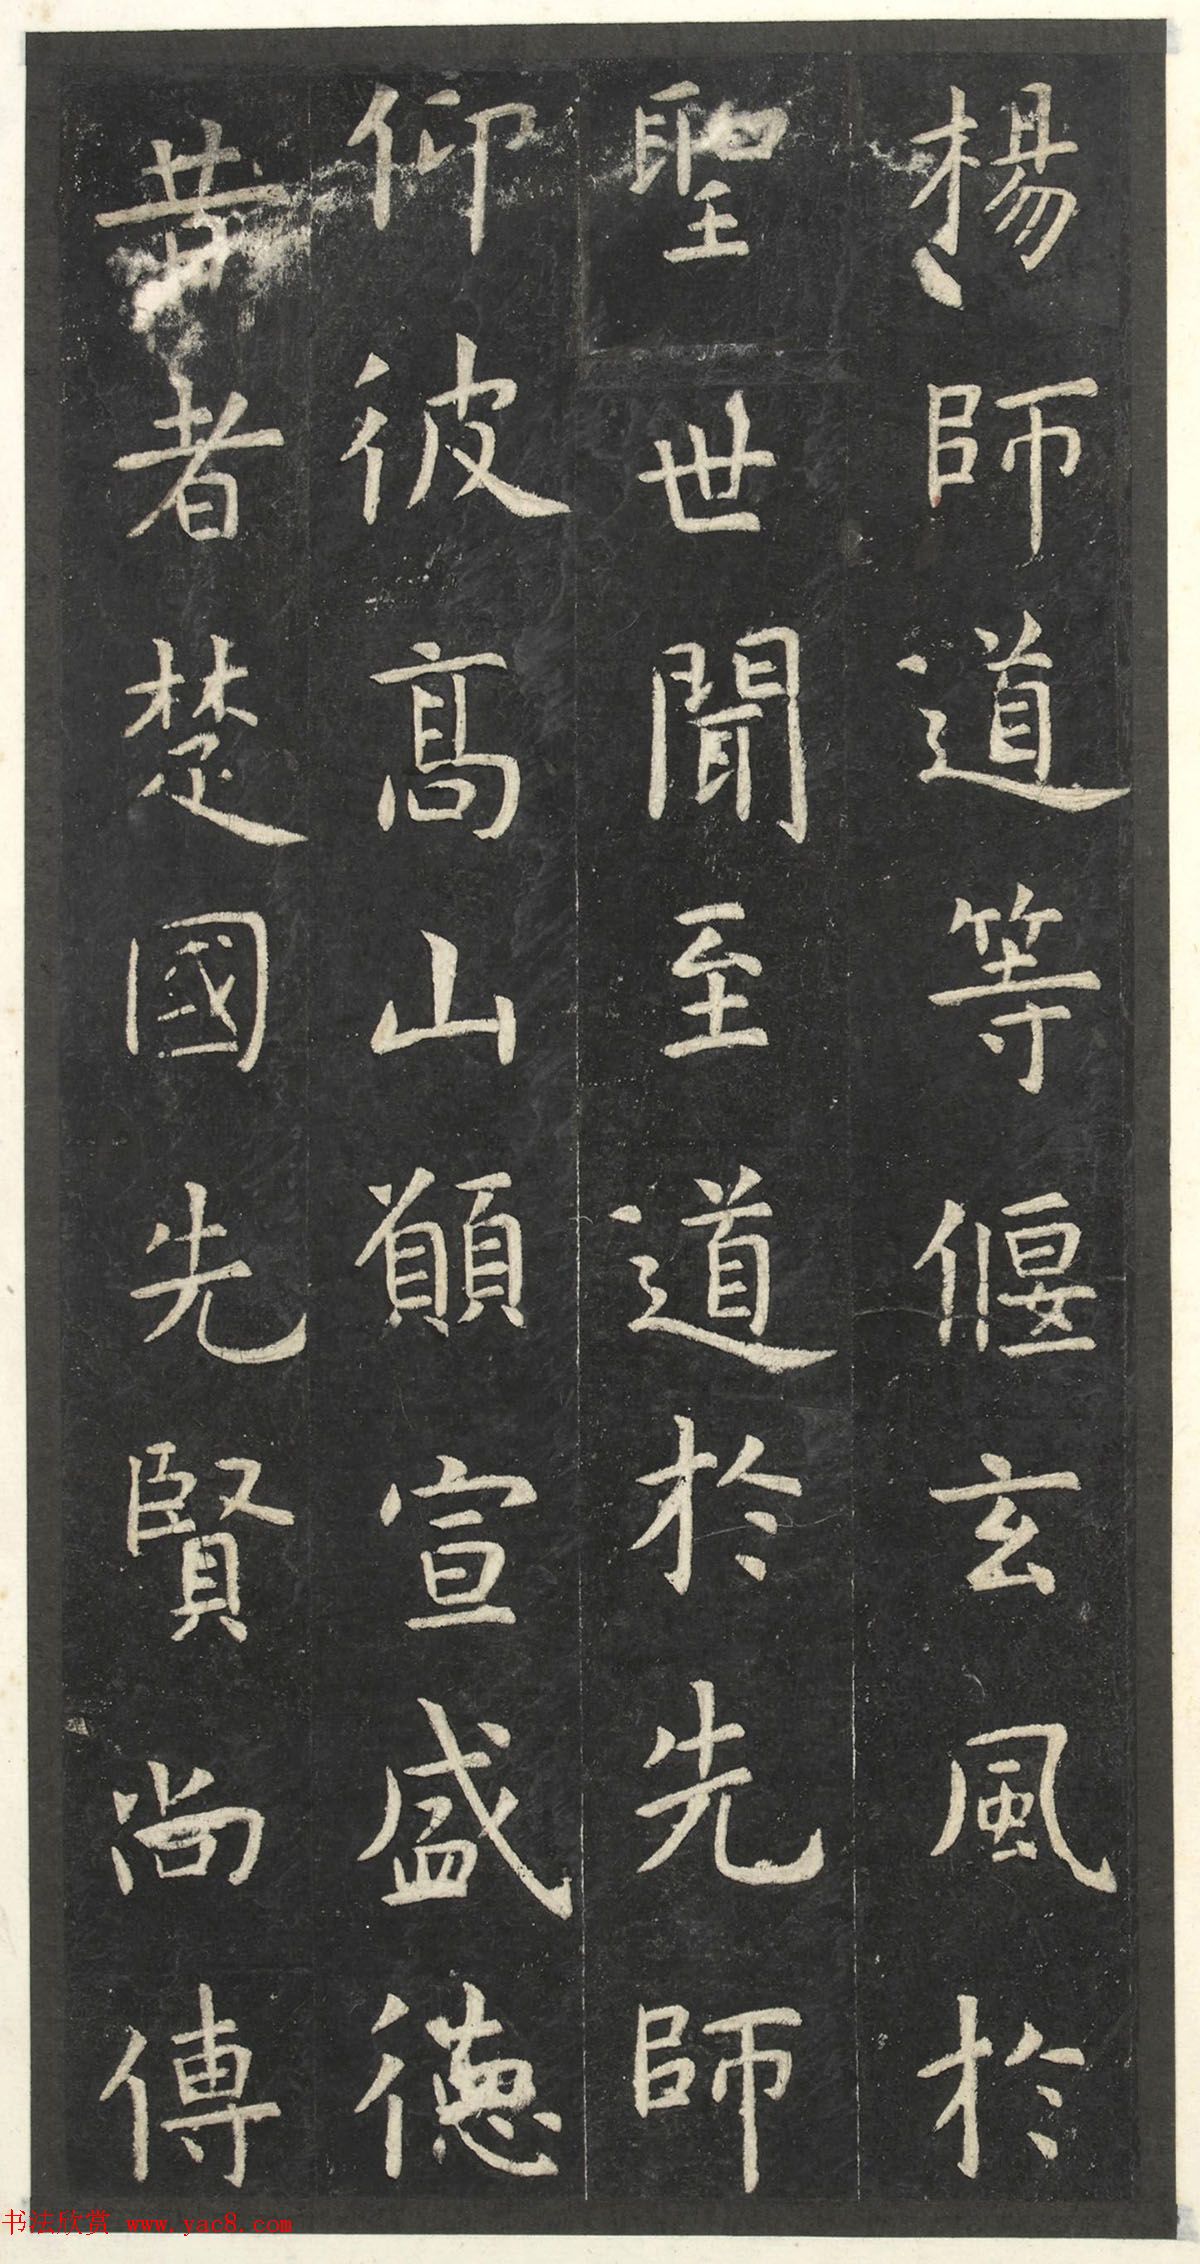 楊師道等偃玄風於
聖世聞至道於先師
仰彼高山願宣盛德
昔者楚國先賢尚傳
书法欣赏 www.yac8.com